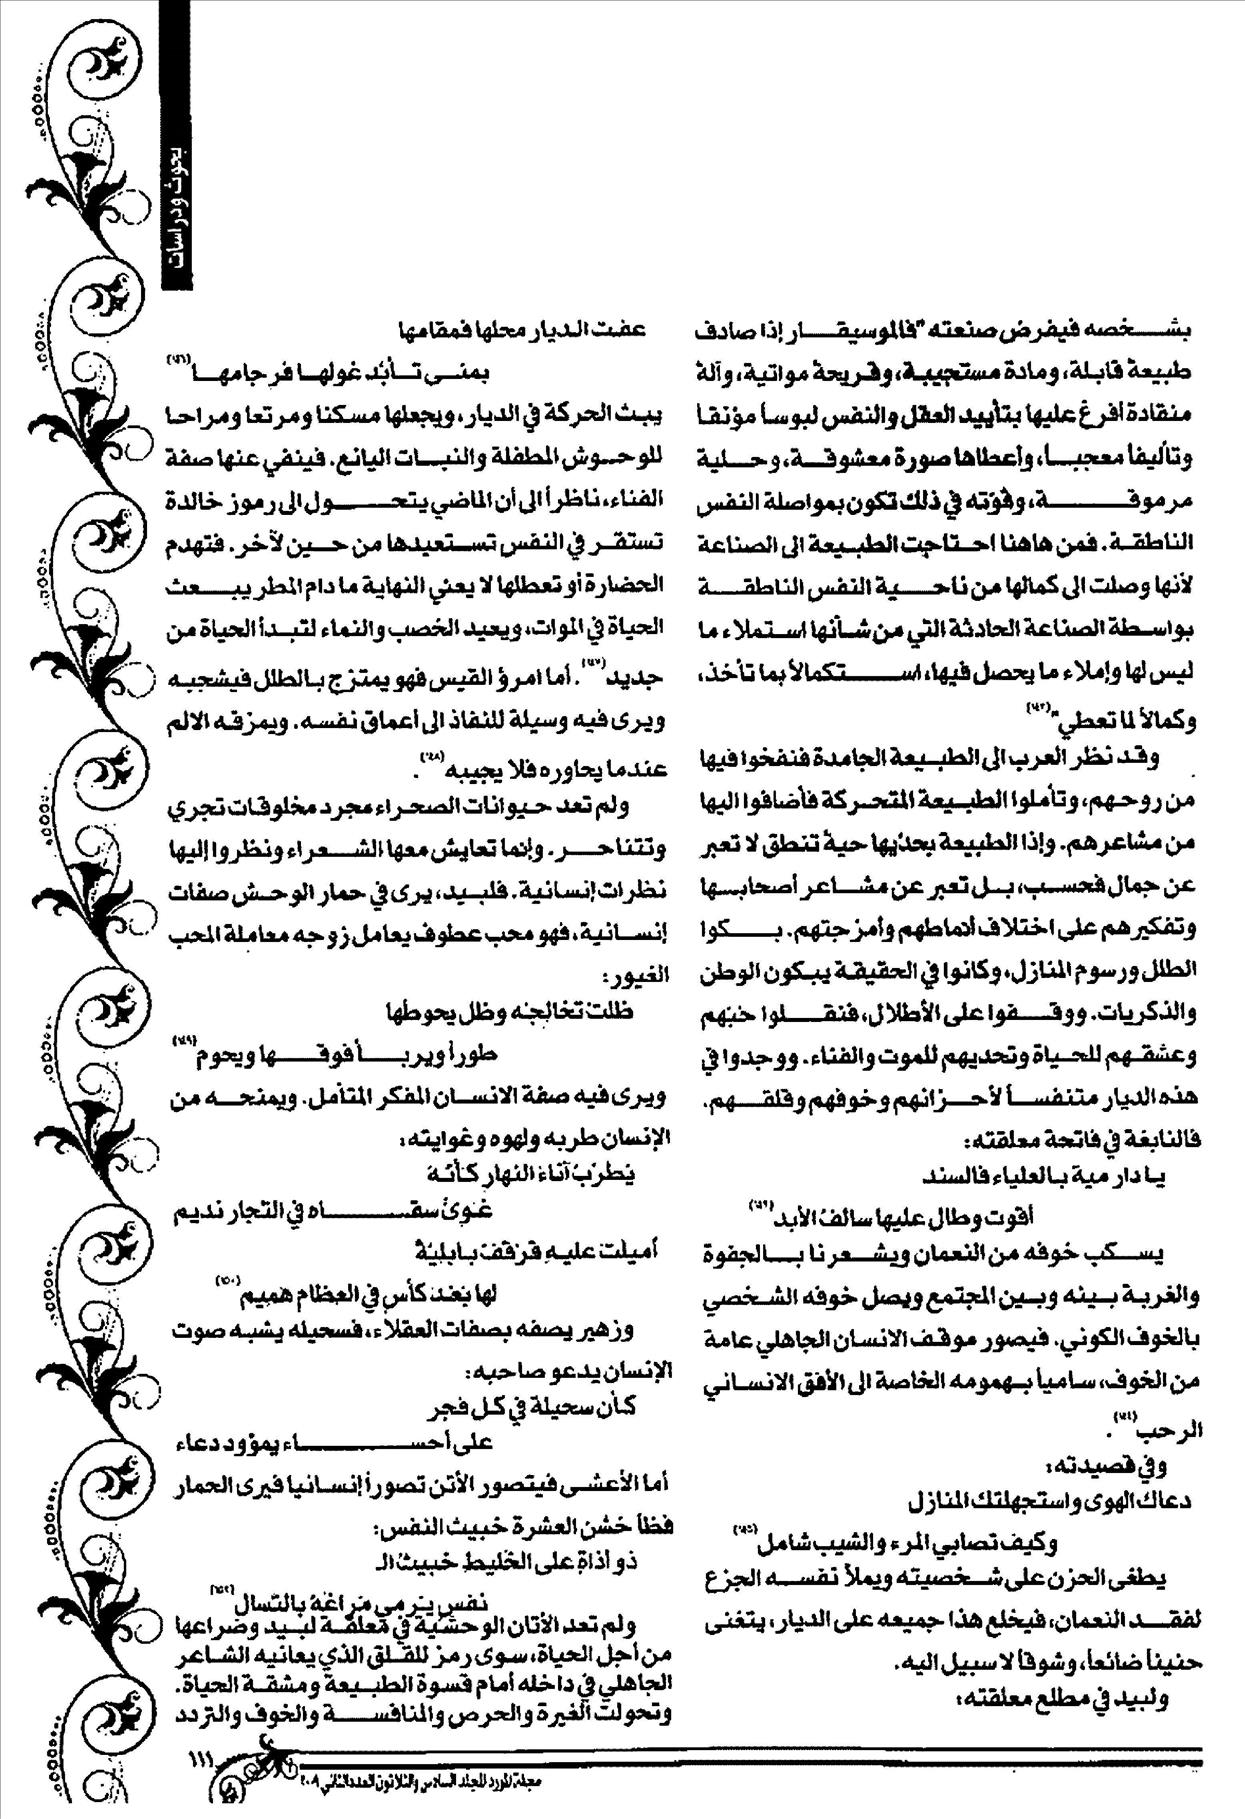 بحوث ودراسات
بشخصه فيفرض صنعته "فالموسيقار إذا صادف
طبيعة قابلة، ومادة مستجيبة، وقريحة مواتية، وآلة
منقادة أفرغ عليها بتأييد العقل والنفس لبوساً مؤنقا
وتأليفاً معجباً، وأعطاها صورة معشوقة، وحلية
مرموقة، وقوته في ذلك تكون بمواصلة النفس
الناطقة. فمن هاهنا احتاجت الطبيعة الى الصناعة
لأنها وصلت الى كمالها من ناحية النفس الناطقة
بواسطة الصناعة الحادثة التي من شأنها استملاء ما
ليس لها وإملاء ما يحصل فيها، استكمالاً بما تأخذ،
وكمالاً لما تعطي"(١٤٣)
وقد نظر العرب الى الطبيعة الجامدة فنفخوا فيها
من روحهم، وتأملوا الطبيعة المتحركة فأضافوا اليها
من مشاعرهم. وإذا الطبيعة بحدّيها حية تنطق لا تعبر
عن جمال فحسب، بل تعبر عن مشاعر أصحابها
وتفكيرهم على اختلاف أنماطهم وأمزجتهم. بكوا
الطلل ورسوم المنازل، وكانوا في الحقيقة يبكون الوطن
والذكريات. ووقفوا على الأطلال، فنقلوا حبّهم
وعشقهم للحياة وتحديهم للموت والفناء. ووجدوا في
هذه الديار متنفساً لأحزانهم وخوفهم وقلقهم.
فالنابغة في فاتحة معلقته:
يا دار مية بالعلياء فالسند
أقوت وطال عليها سالفُ الأبد(١٤٤)
يسكب خوفه من النعمان ويشعرنا بالجفوة
والغربة بينه وبين المجتمع ويصل خوفه الشخصي
بالخوف الكوني. فيصور موقف الانسان الجاهلي عامة
من الخوف، سامياً بهمومه الخاصة الى الأفق الانساني
الرحب(١٤٤).
وفي قصيدته:
دعاك الهوى واستجهلتك المنازل
وكيف تصابي المرء والشيب شامل(١٤٥)
يطغى الحزن على شخصيته ويملأ نفسه الجزع
لفقد النعمان، فيخلع هذا جميعه على الديار، يتغنى
حنيناً ضائعاً، وشوقاً لا سبيل اليه.
ولبيد في مطلع معلقته:
عفت الديار محلها فمقامها
بمنى تأبّد غولها فرجامها(١٤٦)
يبث الحركة في الديار، ويجعلها مسكنا ومرتعا ومراحا
للوحوش المطفلة والنبات اليانع. فينفي عنها صفة
الفناء، ناظراً الى أن الماضي يتحول الى رموز خالدة
تستقر في النفس تستعيدها من حين لآخر. فتهدم
الحضارة أو تعطلها لا يعني النهاية ما دام المطر يبعث
الحياة في الموات، ويعيد الخصب والنماء لتبدأ الحياة من
جديد(١٤٧). أما امرؤ القيس فهو يمتزج بالطلل فيشجبه
ويرى فيه وسيلة للنفاذ الى أعماق نفسه. ويمزقه الالم
عندما يحاوره فلا يجيبه(١٤٨).
ولم تعد حيوانات الصحراء مجرد مخلوقات تجري
وتتناحر. وإنما تعايش معها الشعراء ونظروا إليها
نظرات إنسانية. فلبيد، يرى في حمار الوحش صفات
إنسانية، فهو محب عطوف يعامل زوجه معاملة المحب
الغيور:
ظلت تخالجنه وظل يحوطها
طوراً ويربأ فوقها ويحوم(١٤٩)
ويرى فيه صفة الانسان المفكر المتأمل. ويمنحه من
الإنسان طربه ولهوه وغوايته:
يَطرَبُ آناءَ النهار كأنّهَ
غَويٌ سقاه في التجار نديم
أميلت عليهِ قرقفٌ بابليّة
لها بَعْدَ كأس في العظام هميم(١٥٠)
وزهير يصفه بصفات العقلاء، فسحيله يشبه صوت
الإنسان يدعو صاحبه:
كأن سحيلة في كل فجر
على أحساء يمؤود دعاء
أما الأعشى فيتصور الأتن تصوراً إنسانيا فيرى الحمار
فظاً خشن العشرة خبيث النفس:
ذو أذاةٍ على الخليط خبيثُ الـ
نفس يرمي مَراغَهُ بالنسال(١٥٢)
ولم تعد الأتان الوحشية في معلقة لبيد وضراعها
من أجل الحياة، سوى رمز للقلق الذي يعانيه الشاعر
الجاهلي في داخله أمام قسوة الطبيعة ومشقة الحياة.
وتحولت الغيرة والحرص والمنافسة والخوف والتردد
١١١
مجلة المورد المجلد السادس والثلاثون العدد الثاني ٢٠٠٨